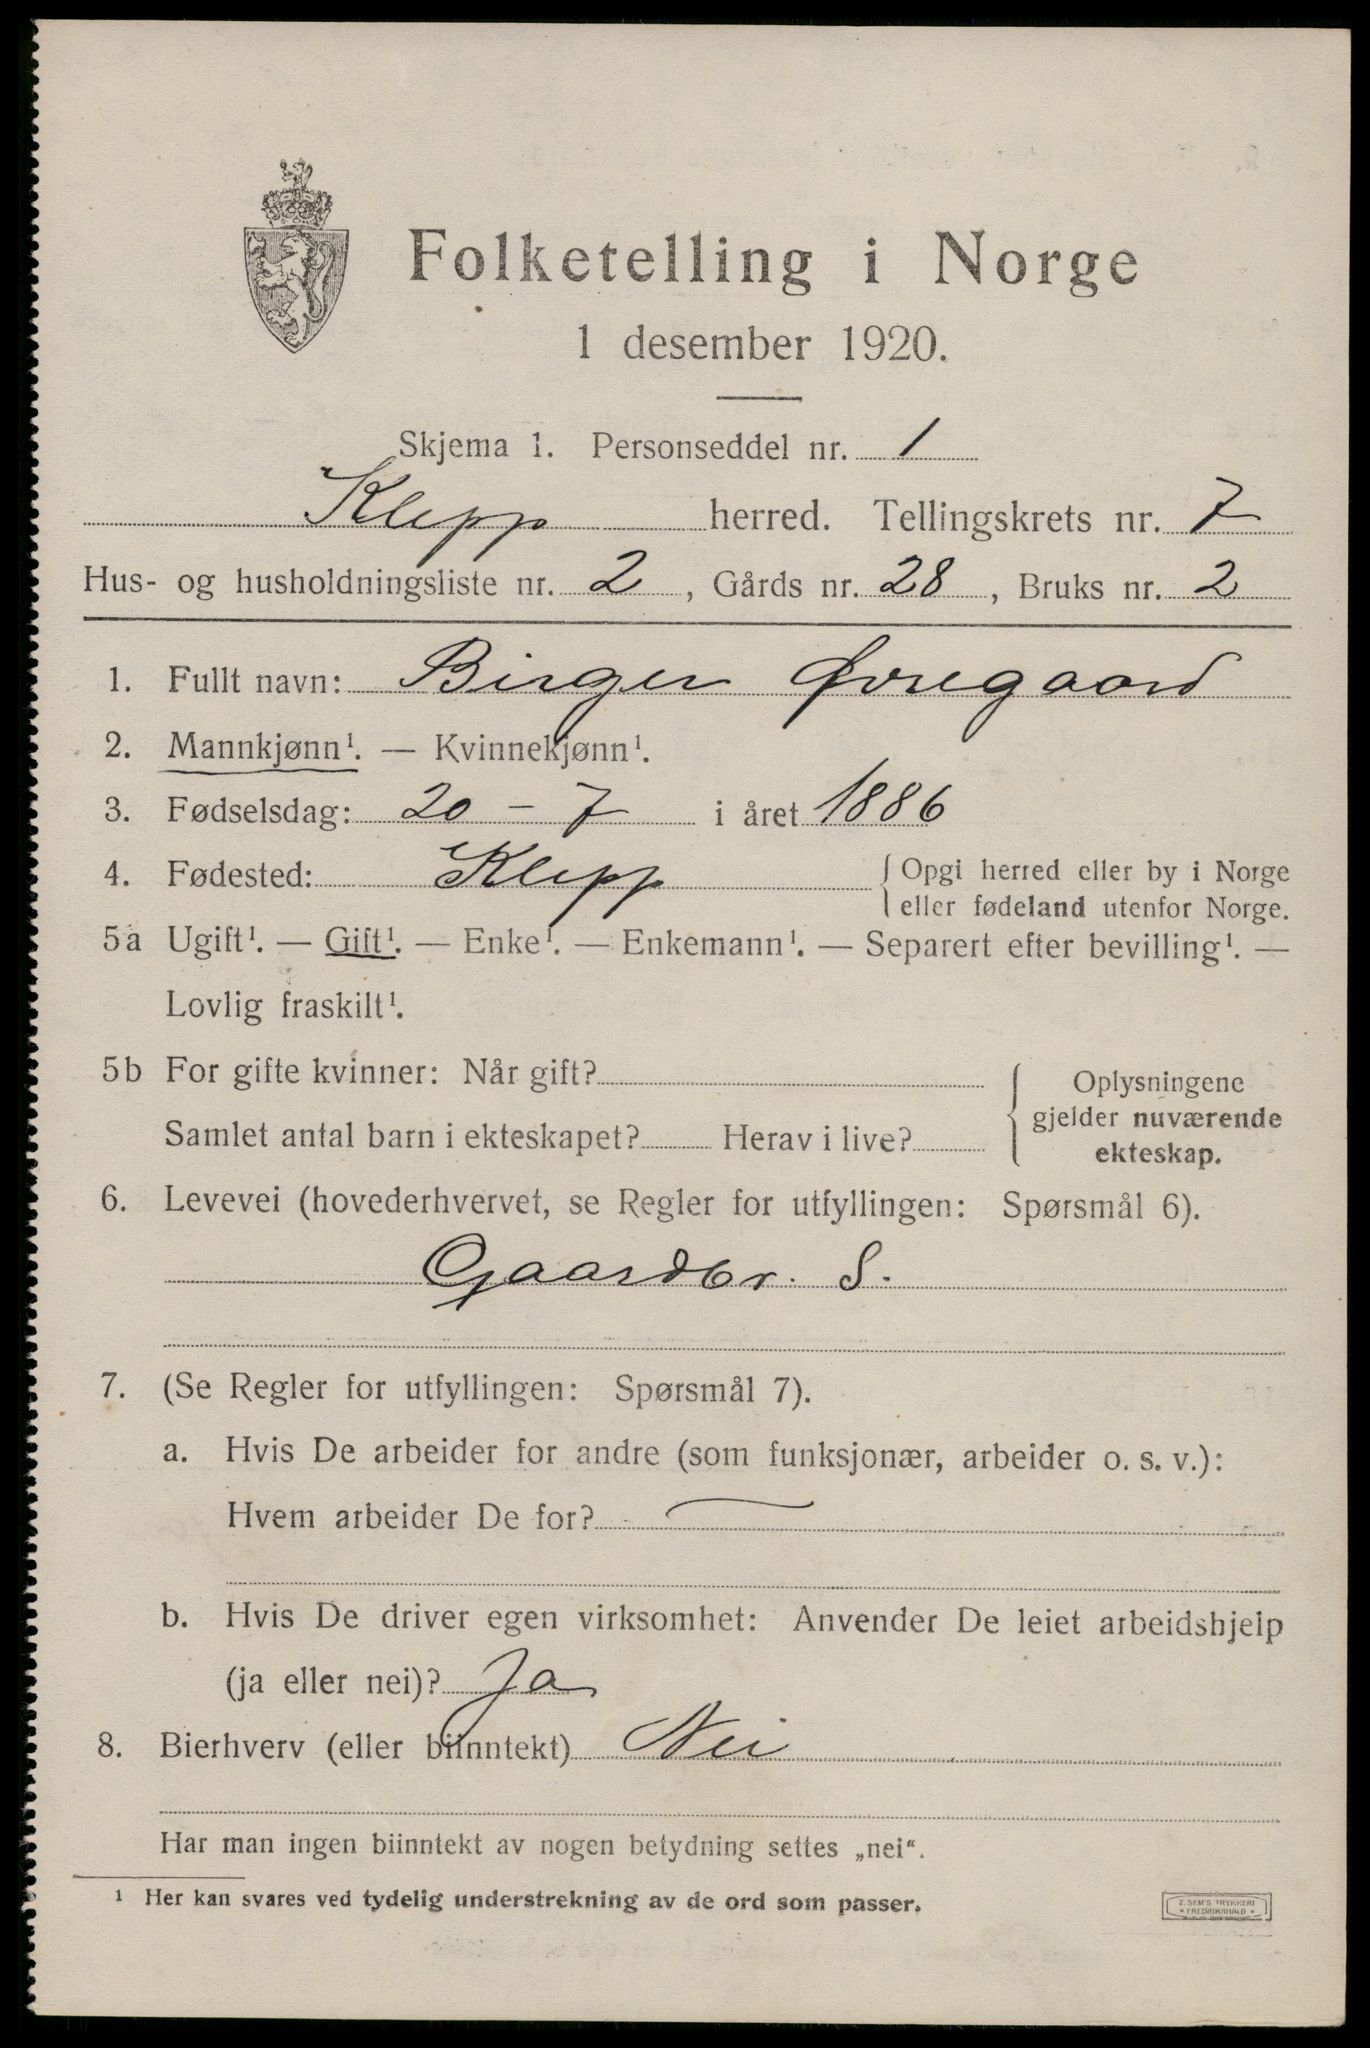 Folketelling i Norge
1 desember 1920.
Skjema 1. Personseddel nr. 1
Klepp herred. Tellingskrets nr. 7
Hus- og husholdningsliste nr. 2, Gårds nr. 28, Bruks nr. 2
1. Fullt navn: Birger Øvregaard
2. Mannkjønn¹. — Kvinnekjønn¹.
3. Fødselsdag: 20 – 7 i året 1886
4. Fødested: Klepp { Opgi herred eller by i Norge
eller fødeland utenfor Norge.
5a Ugift¹. — Gift¹. — Enke¹. — Enkemann¹. — Separert efter bevilling¹. —
Lovlig fraskilt¹.
5b For gifte kvinner: Når gift?
Samlet antal barn i ekteskapet? Herav i live?
{ Oplysningene
gjelder nuværende
ekteskap.
6. Levevei (hovederhvervet, se Regler for utfyllingen: Spørsmål 6).
Gaardbr. S.
7. (Se Regler for utfyllingen: Spørsmål 7).
a. Hvis De arbeider for andre (som funksjonær, arbeider o. s. v.):
Hvem arbeider De for? —
b. Hvis De driver egen virksomhet: Anvender De leiet arbeidshjelp
(ja eller nei)? Ja
8. Bierhverv (eller biinntekt) Nei
Har man ingen biinntekt av nogen betydning settes „nei“.
¹ Her kan svares ved tydelig understrekning av de ord som passer.
Z. SEM'S TRYKKERI
* FREDRIKSHALD *